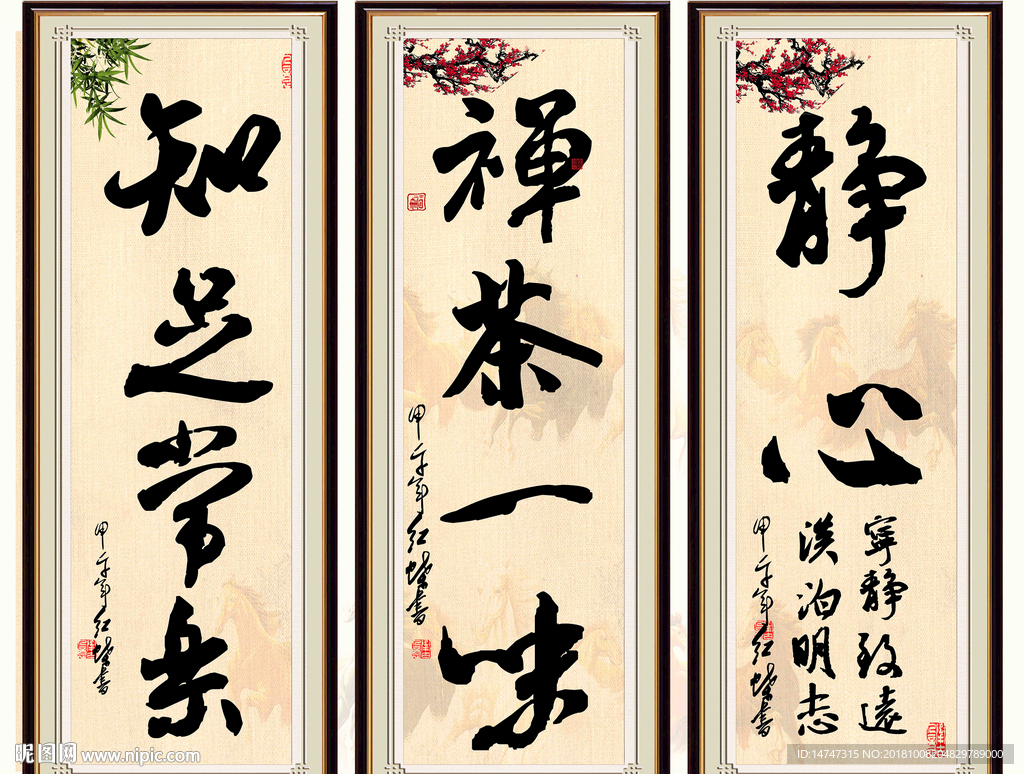 知足常乐
甲午年红蝶书
禅茶一味
甲午年红蝶书
静心
宁静致远
淡泊明志
甲午年红蝶书
昵图网 www.nipic.com
ID:14747315 NO:20181008204829789000